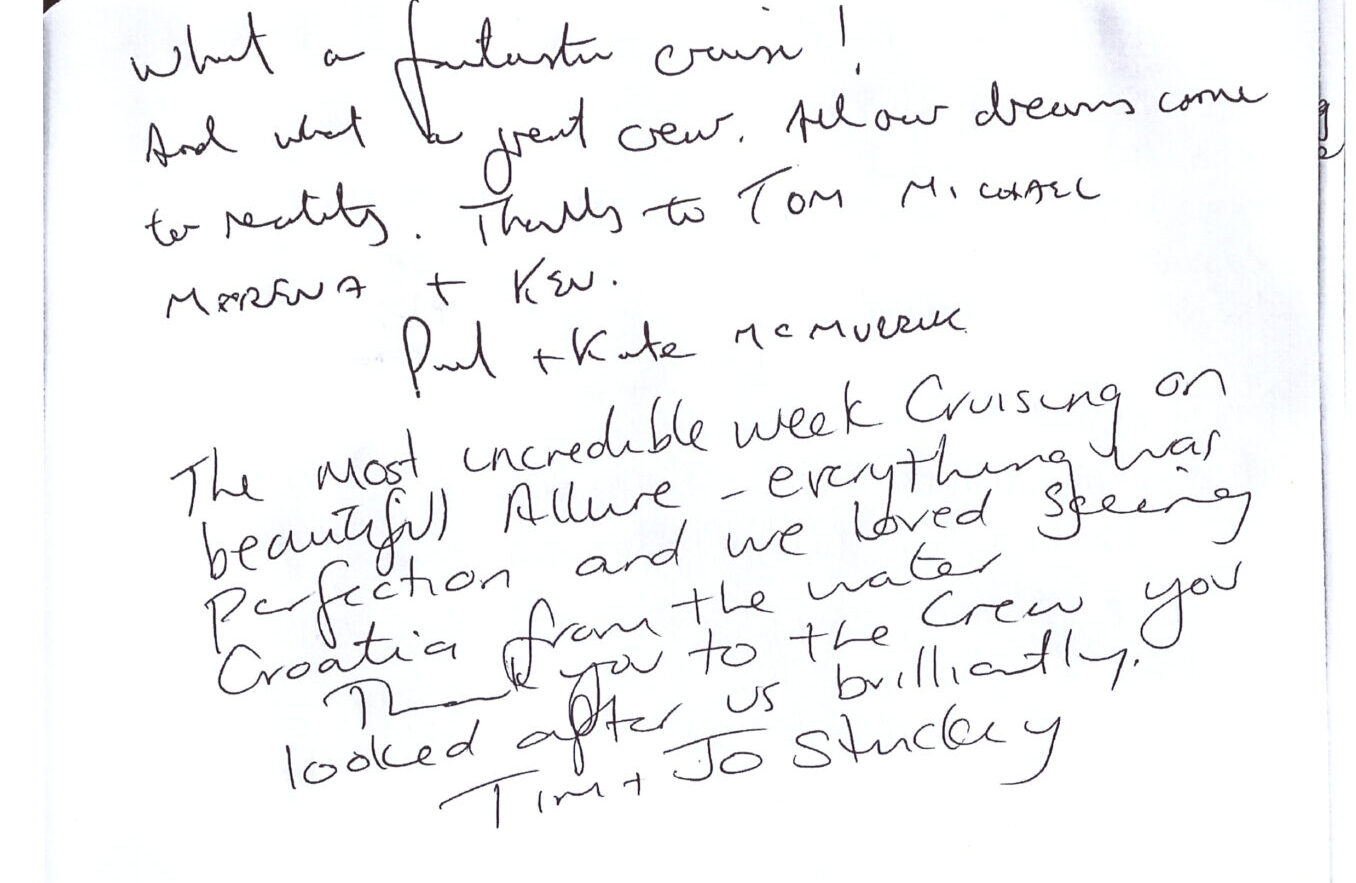 What a fantastic cruise!
And what a great crew. All our dreams come
to reality. Thanks to TOM MICHAEL
MARENA + KEV.
Paul + Kate
The most incredible week Cruising on
beautiful Allure - everything was
Perfection and we loved seeing
Croatia from the water
Thank you to the Crew you
looked after us brilliantly.
Tim + Jo Stuckey